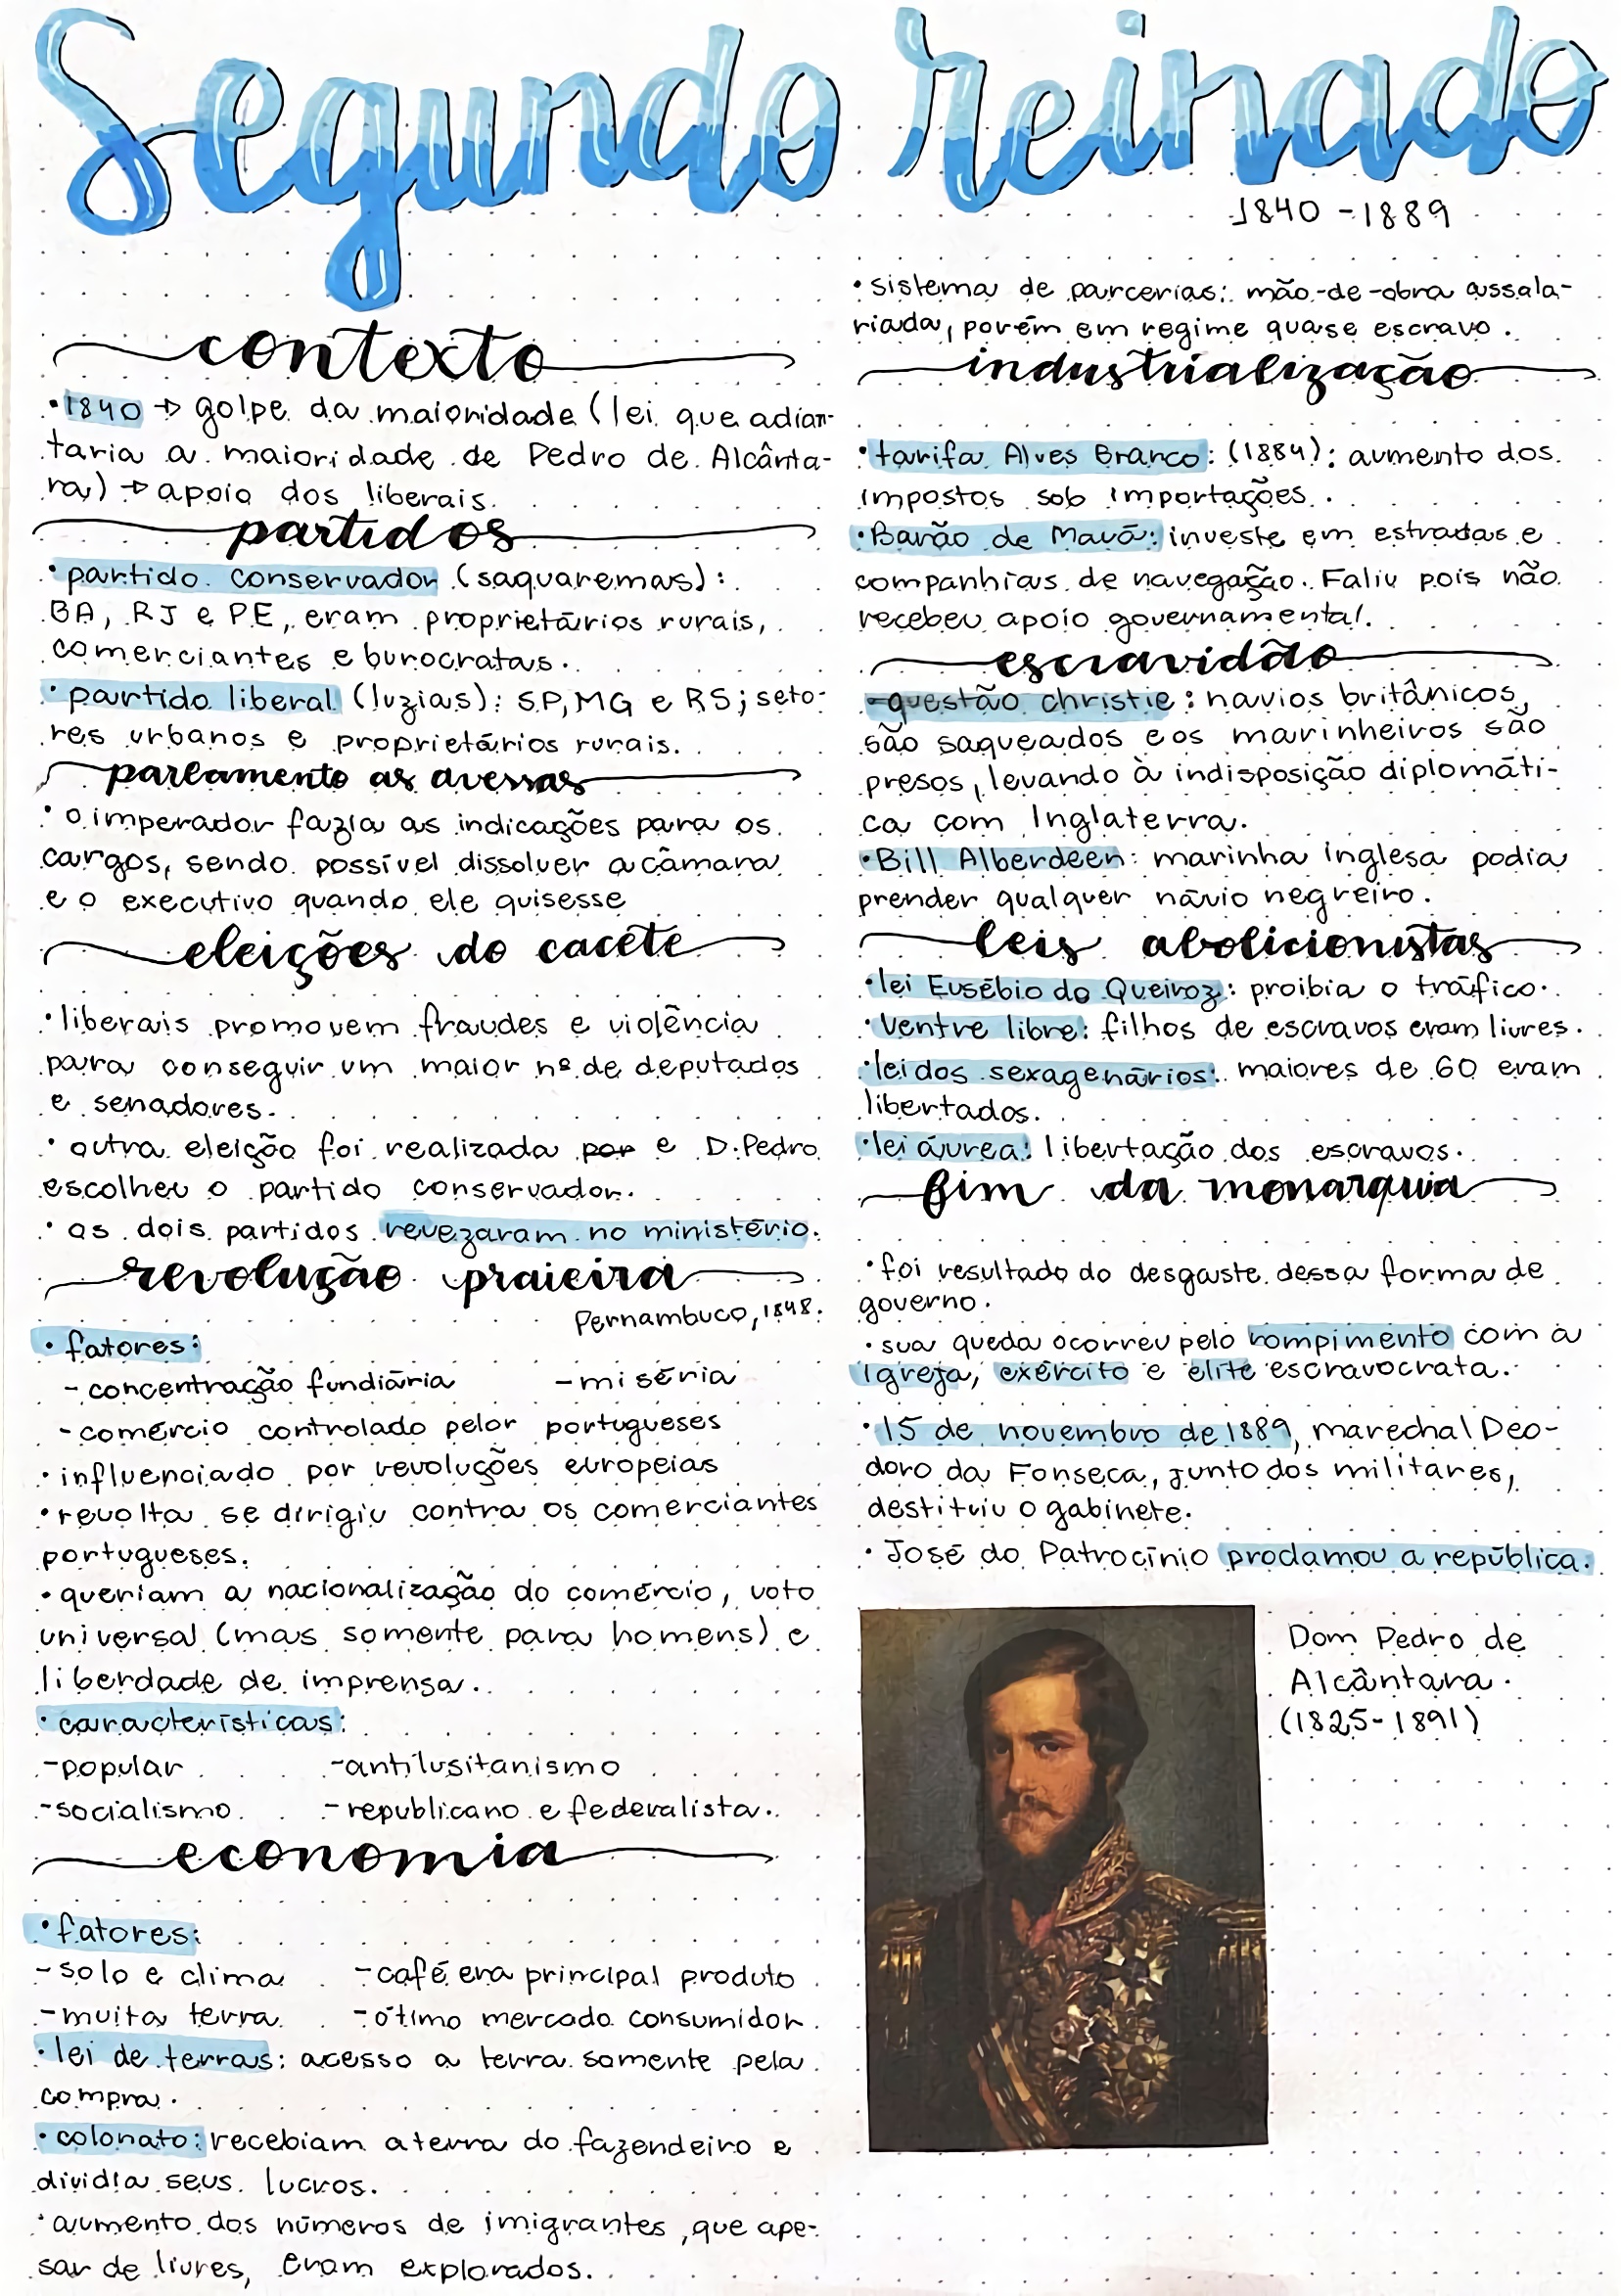 Segundo reinado
1840 - 1889
contexto
•1840 → golpe da maioridade (lei que adian-
taria a maioridade de Pedro de Alcânta-
ra) → apoio dos liberais.
partidos
•partido conservador (saquaremas):
BA, RJ e PE, eram proprietários rurais,
comerciantes e burocratas.
•partido liberal (luzias): SP, MG e RS; seto-
res urbanos e proprietários rurais.
parlamento as avessas
•o imperador fazia as indicações para os
cargos, sendo possível dissolver a câmara
e o executivo quando ele quisesse
eleições do cacete
•liberais promovem fraudes e violência
para conseguir um maior nº de deputados
e senadores.
•outra eleição foi realizada por e D. Pedro
escolheu o partido conservador.
•os dois partidos revezaram no ministério.
revolução praieira
Pernambuco, 1848.
•fatores:
-concentração fundiária -miséria
-comércio controlado pelor portugueses
•influenciado por revoluções europeias
•revolta se dirigiu contra os comerciantes
portugueses.
•queriam a nacionalização do comércio, voto
universal (mas somente para homens) e
liberdade de imprensa.
•características:
-popular -antilusitanismo
-socialismo -republicano e federalista.
economia
•fatores:
-solo e clima -café era principal produto
-muita terra -ótimo mercado consumidor.
•lei de terras: acesso a terra somente pela
compra.
•colonato: recebiam a terra do fazendeiro e
dividia seus lucros.
•aumento dos números de imigrantes, que ape-
sar de livres, eram explorados.
•sistema de parcerias: mão-de-obra assala-
riada, porém em regime quase escravo.
industrialização
•tarifa Alves Branco: (1884): aumento dos
impostos sob importações.
•Barão de Mauá: investe em estradas e
companhias de navegação. Faliu pois não
recebeu apoio governamental.
escravidão
-questão christie: navios britânicos
são saqueados e os marinheiros são
presos, levando à indisposição diplomáti-
ca com Inglaterra.
•Bill Alberdeen: marinha inglesa podia
prender qualquer návio negreiro.
leis abolicionistas
•lei Eusébio do Queiroz: proibia o tráfico.
•Ventre libre: filhos de escravos eram livres.
•lei dos sexagenários: maiores de 60 eram
libertados.
•lei áurea: libertação dos escravos.
fim da monarquia
•foi resultado do desgaste dessa forma de
governo.
•sua queda ocorreu pelo rompimento com a
Igreja, exército e elite escravocrata.
•15 de novembro de 1889, marechal Deo-
doro da Fonseca, junto dos militares,
destituiu o gabinete.
•José do Patrocínio proclamou a república.
Dom Pedro de
Alcântara.
(1825-1891)